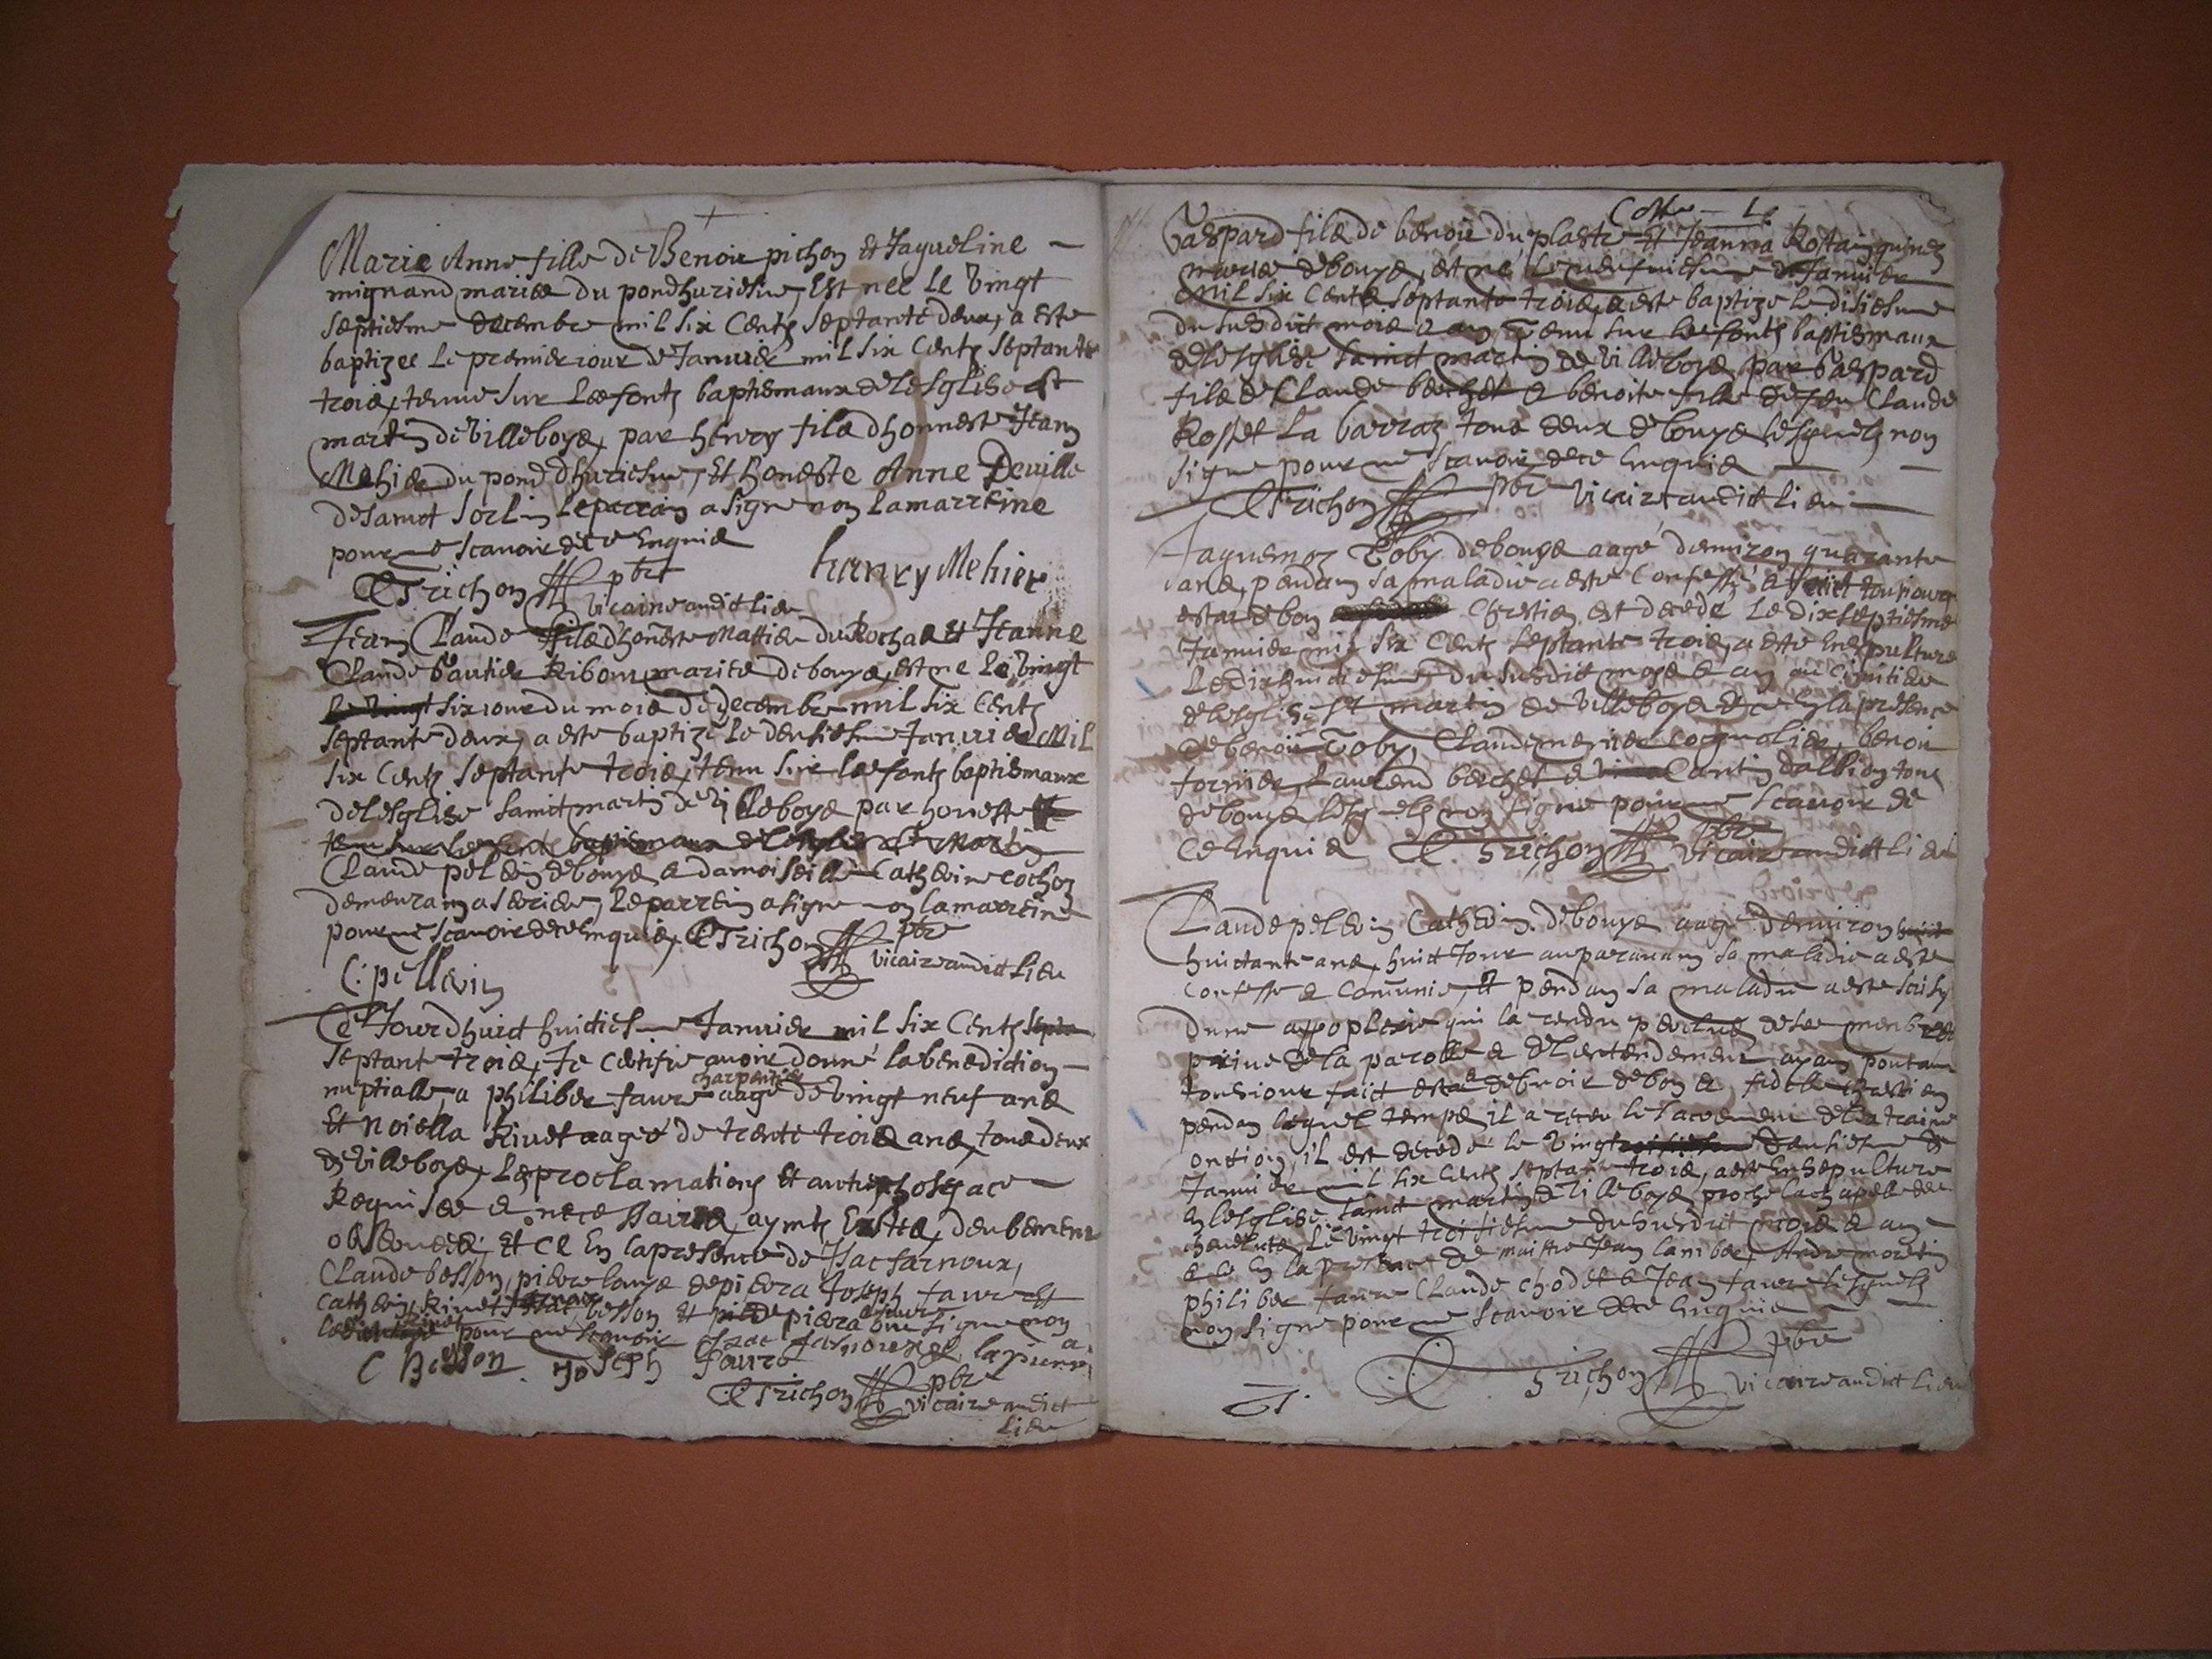 Marie Anne fille de Benoit pichon Et Jaqueline
mignand mariee du pondhuriesme, Est nee le vingt
septiesme decembre mil six Cents septante deux, a este
baptizee le premier iour de Januier mil six Cents septante
trois, tenue sur les fonts baptismaux de lesglise st
martin de villeboys, par henry fils dhonneste Jean
Mehier du pond dhuriesme, Et honeste Anne Deville
de sainct sorlin le parrain a signe non la marreine
pour ne scauoir de ce Enquis
Trichon pbre henry Mehier
vicaire audict lieu
Jean Claude fils dhoneste Mattieu du Rochas et Jeanne
Claude Gautier Ribou maries de bouys, est ne le vingt
six iour du mois de decembre mil six Cents
septante deux, a este baptize le deusiesme Januier Mil
six Cents septante trois, tenu sur les fonts baptismaux
de lesglise sainct martin de villeboys par honeste
tenu sur les fonts baptismaux de lesglise St Martin
Claude pelevin de bouys & damoiselle Catherine cochon
demeurans a serieu, le parrein a signe non la marreine
pour ne scauoir de ce enquis, Trichon pbre
vicaire audict lieu
C: pellevin
Ce Jourdhuict huictiesme Januier mil six Cents septa
septante trois, Je certifie auoir donné la benediction
nuptialle, a philiber faure aagé de vingt neuf ans
charpentier
Et noiella Riuet aageé de trente trois ans, tous deux
de villeboys, les proclamations Et autres choses a ce
Requises & necessaires aymts Estees deubement
obseruees, Et ce En la presence de Isac farnoux,
Claude besson, pierre louys de piera Joseph faure Et
Catherin Riuet besson Et de piera faure ont signe non
pour ne scauoir Isac farnoux de la piera
C Besson Joseph faure
Trichon pbre
vicaire audict
lieu
Cotte
Gaspard fils de benoit du plastre Et Jeanna Rostain
maries de bouys, est né le Januier
Mil six Cents septante trois, a este baptize le disiesme
du susdict mois & an, tenu sur les fonts baptismaux
de lesglise sainct martin de villeboys, par Gaspard
fils de Claude berchet & benoite fille de feu Claude
Rosset la barraz tous deux de bouys lesquels non
signe pour ne scauoir de ce Enquis
Trichon pbre vicaire audict lieu
Jaquemoz Toby de bouys aagé denuiron quarante
ans, pendan sa maladie a este Confessé & faict tousiours
estat de bon Chrestien est decedé le dixseptiesme
Januier mil six Cents septante trois, a este Ensepulture
Le dixhuictiesme du susdict moys & an au Cimitiere
de lesglise St martin de villeboys & ce En la presence
de benoit Toby, Claude mernier benoit
fornier, Laurend berchet & Cantin dalbion tous
de bouys lesquels non signe pour ne scauoir de
ce Enquis Trichon pbre vicaire audict lieu
Claude pelevin Catherin de bouys aagé denuiron
huictante ans, huict Jours auparauam sa maladie a este
Confesse & Comunie, Et pendan sa maladie a este saisy
dune appoplexie qui la rendu perclus de ses membres
priue de la parolle & de lentendement, ayan pourtan
tousiours faict estat & debuoir de bon & fidelle chrestien
pendan lequel temps il a receu le sacrement de lextraime
onction, il est decedé le vingt deusiesme de
Januier mil six Cents septante trois, a este Ensepulture
En lesglise sainct martin de villeboys proche la chapelle des
le vingt troisiesme du susdict mois & an
& ce En la presence de maistre Jean lamber, Andre moretin
philiber faure Claude chodet & Jean faure lesquels
non signe pour ne scauoir de ce Enquis
Trichon pbre
vicaire audict lieu